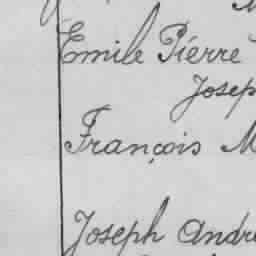 Emile Piérre
Josep
François M
Joseph André